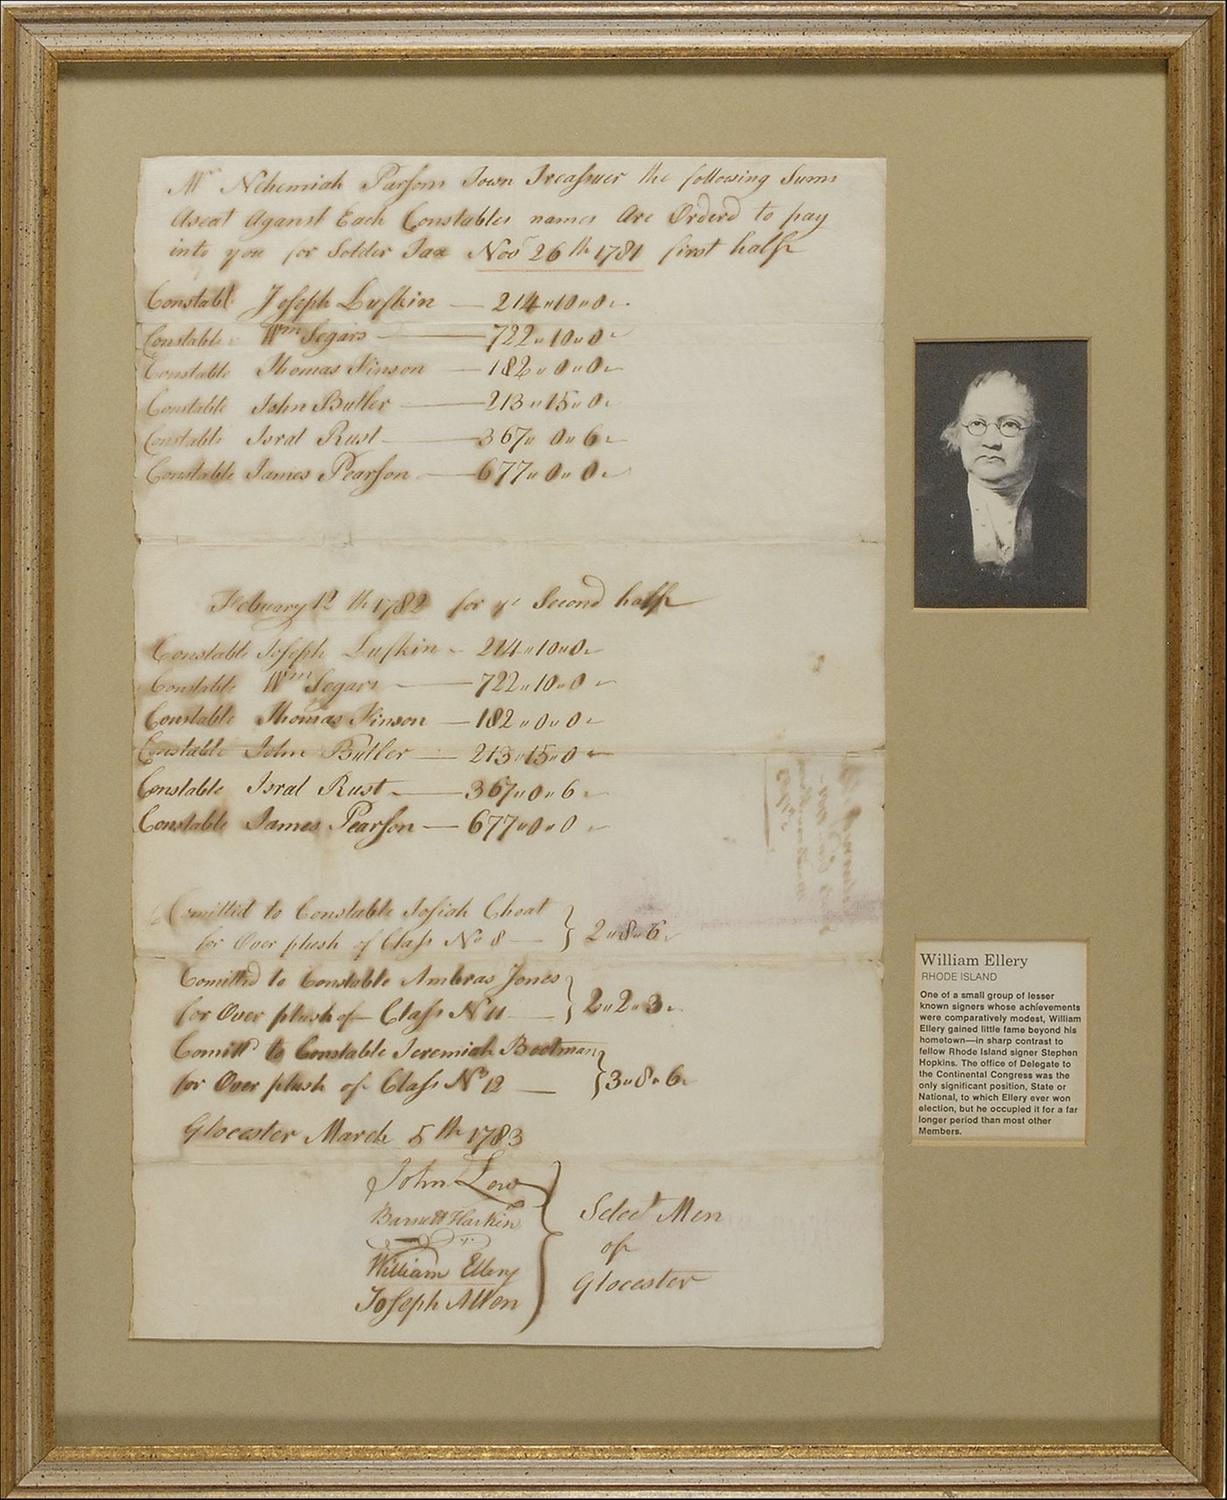 Mr Nehemiah Parsons Town Treasuer the following Sums
Aseat Aganst Each Constables names Are Orderd to pay
into you for Solder Tax Novr 26 th 1781 first half
Constabl Joseph Lufkin — 214 " 10 " 0
Constable Wm Segars — 722 " 10 " 0
Constable Thomas Kinson — 182 " 0 " 0
Constable John Butler — 213 " 15 " 0
Constable Isral Rust — 367 " 0 " 6
Constable James Pearson — 677 " 0 " 0
Febuary 12 th 1782 for ye Second half
Constable Joseph Lufkin - 214 " 10 " 0
Constable Wm Segars — 722 " 10 " 0
Constable Thomas Kinson — 182 " 0 " 0
Constable John Butler — 213 " 15 " 0
Constable Isral Rust — 367 " 0 " 6
Constable James Pearson — 677 " 0 " 0
Comitted to Constable Josiah Choat
for Over plush of Class No 8 — } 2 " 8 " 6
Comitted to Constable Ambras Jones
for Over plush of Class No 11 — } 2 " 2 " 3
Comittd to Constable Jeremiah Bootman
for Over plush of Class No 12 — } 3 " 8 " 6
Glocester March 5 th 1783
John Low
Barnett Harkin
William Ellery
Joseph Allen
Select Men
of
Glocester
William Ellery
RHODE ISLAND
One of a small group of lesser
known signers whose achievements
were comparatively modest, William
Ellery gained little fame beyond his
hometown—in sharp contrast to
fellow Rhode Island signer Stephen
Hopkins. The office of Delegate to
the Continental Congress was the
only significant position, State or
National, to which Ellery ever won
election, but he occupied it for a far
longer period than most other
Members.